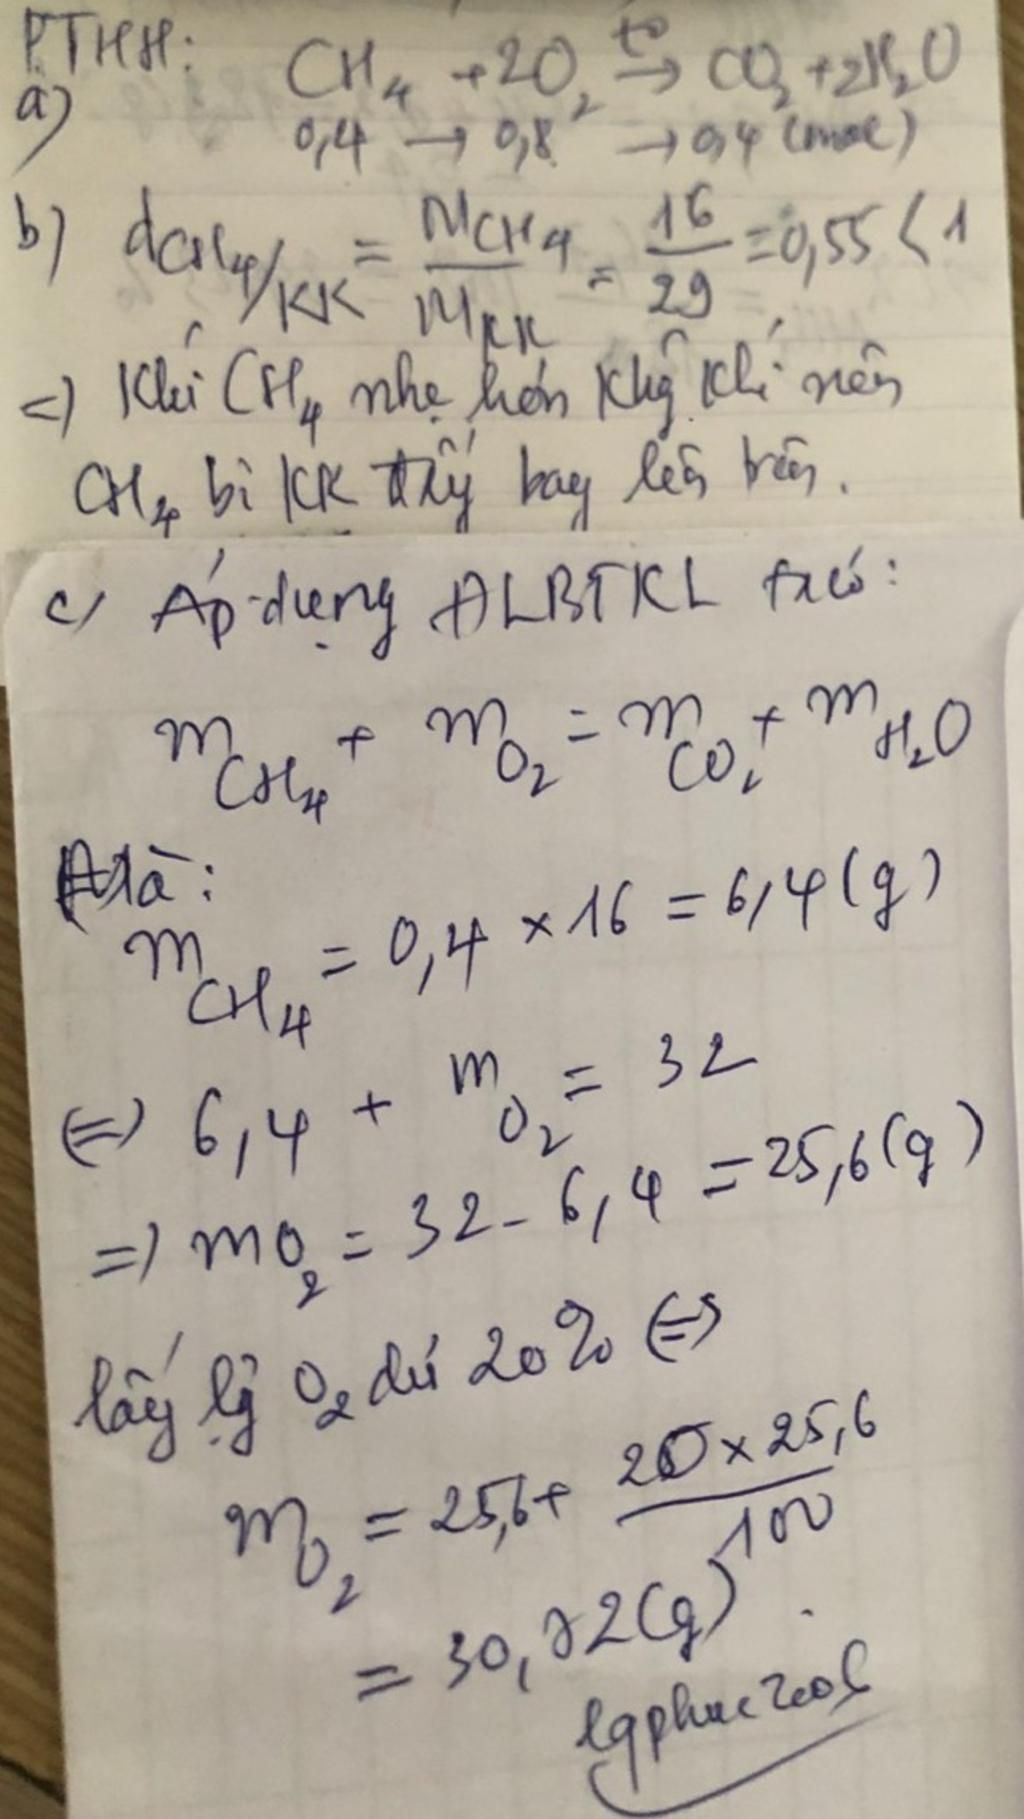 PTHH: CH₄ + 2O₂ t⁰→ CO₂ + 2H₂O
a) 0,4 → 0,8 → 0,4 (mol)
b) dCH₄/KK = MCH₄/MKK = 16/29 = 0,55 < 1
=) Khí CH₄ nhẹ hơn không khí nên
CH₄ bị KK đẩy bay lên trên.
c) Áp dụng ĐLBTKL ta có:
mCH₄ + mO₂ = mCO₂ + mH₂O
Mà:
mCH₄ = 0,4 × 16 = 6,4 (g)
(=) 6,4 + mO₂ = 32
=) mO₂ = 32 - 6,4 = 25,6 (g)
lấy O₂ dư 20% (=)
mO₂ = 25,6 + 20 × 25,6/100
= 30,72 (g)